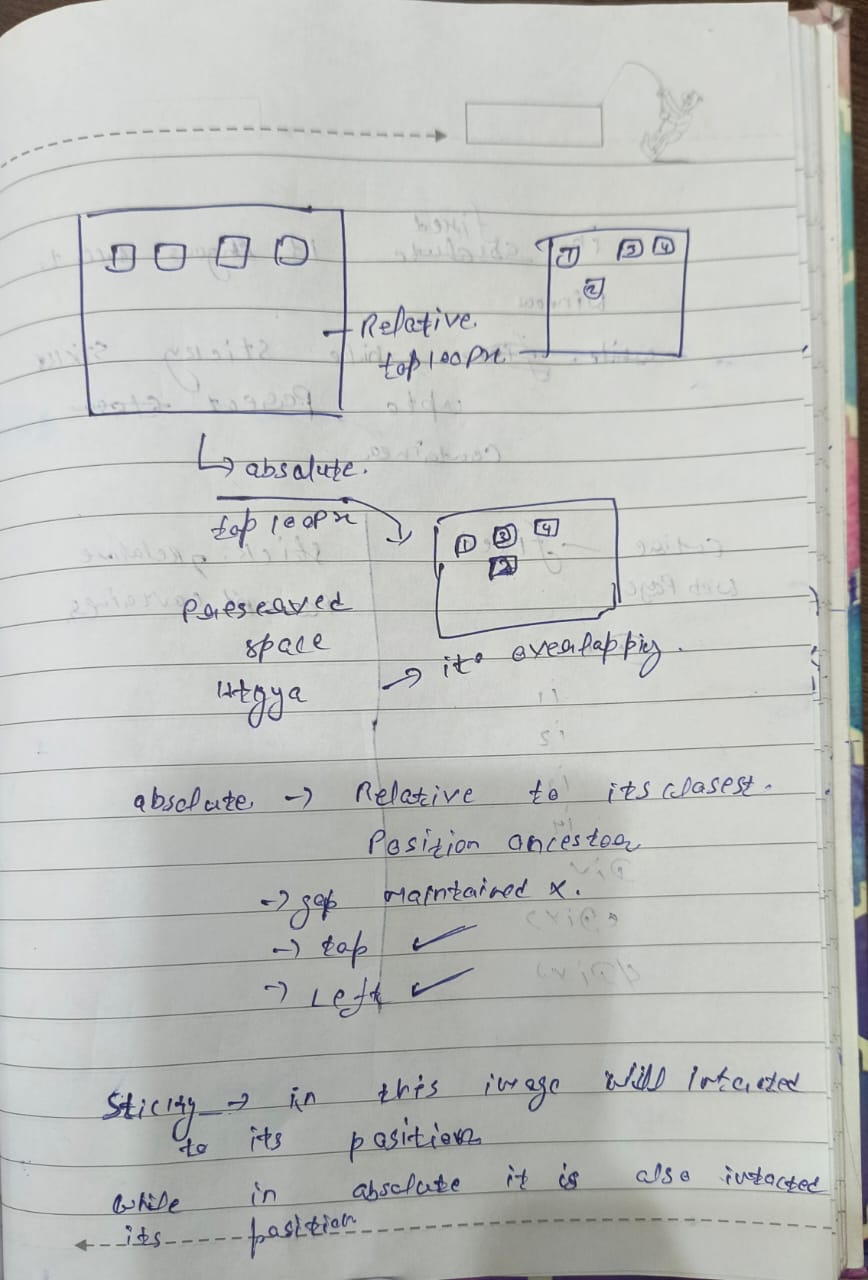 1 3 4
2
Relative.
top 100px
absolute.
top 100px
1 3 4
2
Preserved
space
Htgya
its overlapping.
absolute → Relative to its closest.
Position ancestor
→ gap maintained x.
→ top ✓
→ Left ✓
Sticky → in this image will intacted
to its position
while in absolute it is also intacted
its position